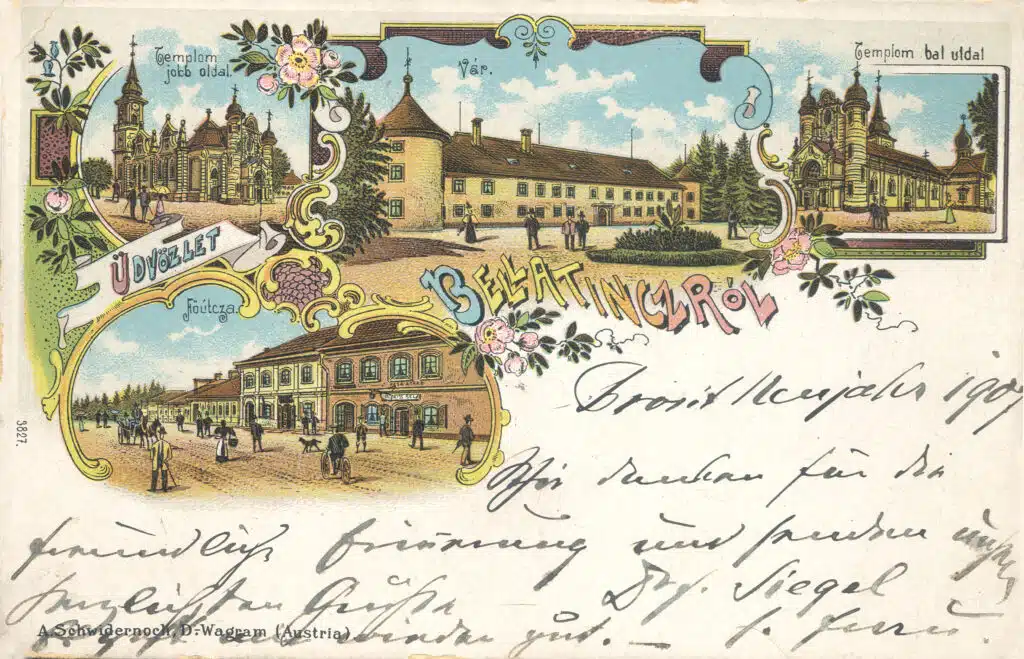 Templom
jobb oldal.
Vár.
Templom bal oldal
ÜDVÖZLET
BELLATINCZRÓL
Főútcza.
3827.
Prosit Neujahr 190
Wir danken für die
freundliche Erinnerung und senden
herzlichsten Grüße Siegel
A. Schwidernoch, D.-Wagram (Austria)
wieder gut. —